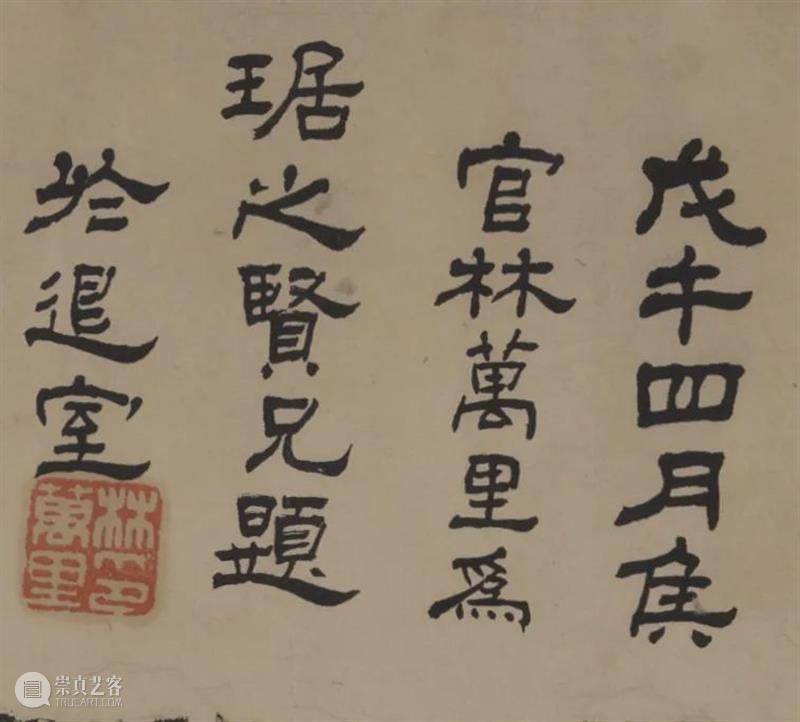 戊午四月矦
官林萬里爲
琚之賢兄題
於退室
林印
萬里
崇真艺客
TRUEART.COM